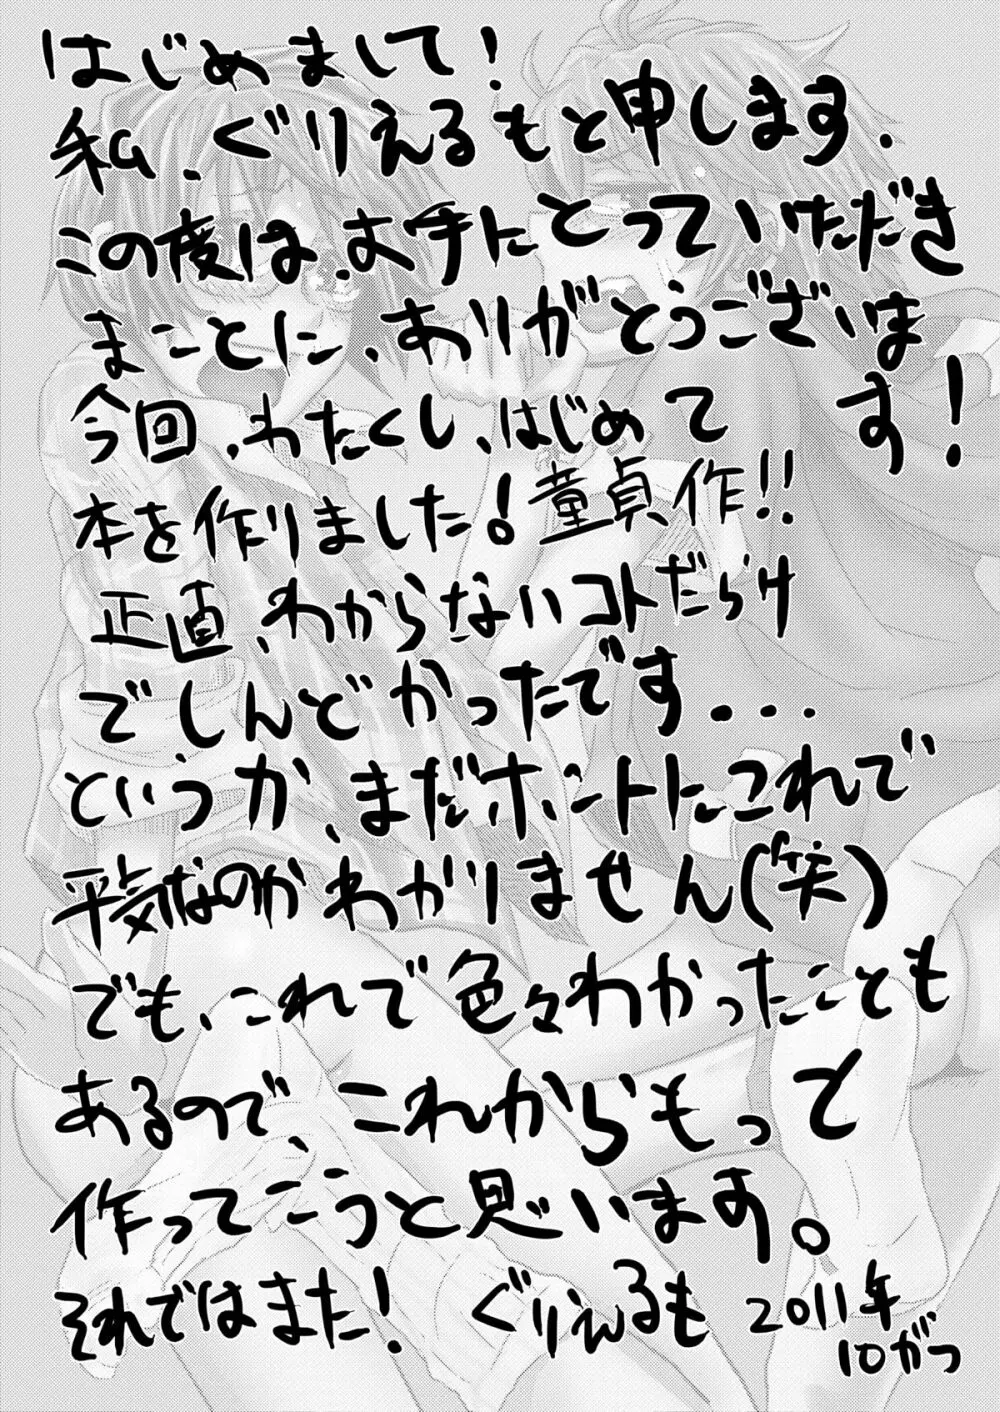 はじめまして!
私、ぐりえるもと申します.
この度は、お手にとっていただき
まことに、ありがとうございま
す!
今回、わたくし、はじめて
本を作りました!童貞作!!
正直、わからないコトだらけ
でしんどかったです...
というか、まだホントにこれで
平気なのか、わかりません(笑)
でも、これで色々わかったことも
あるので、これからもっと
作ってこうと思います。
それではまた! ぐりえるも 2011年
10がつ